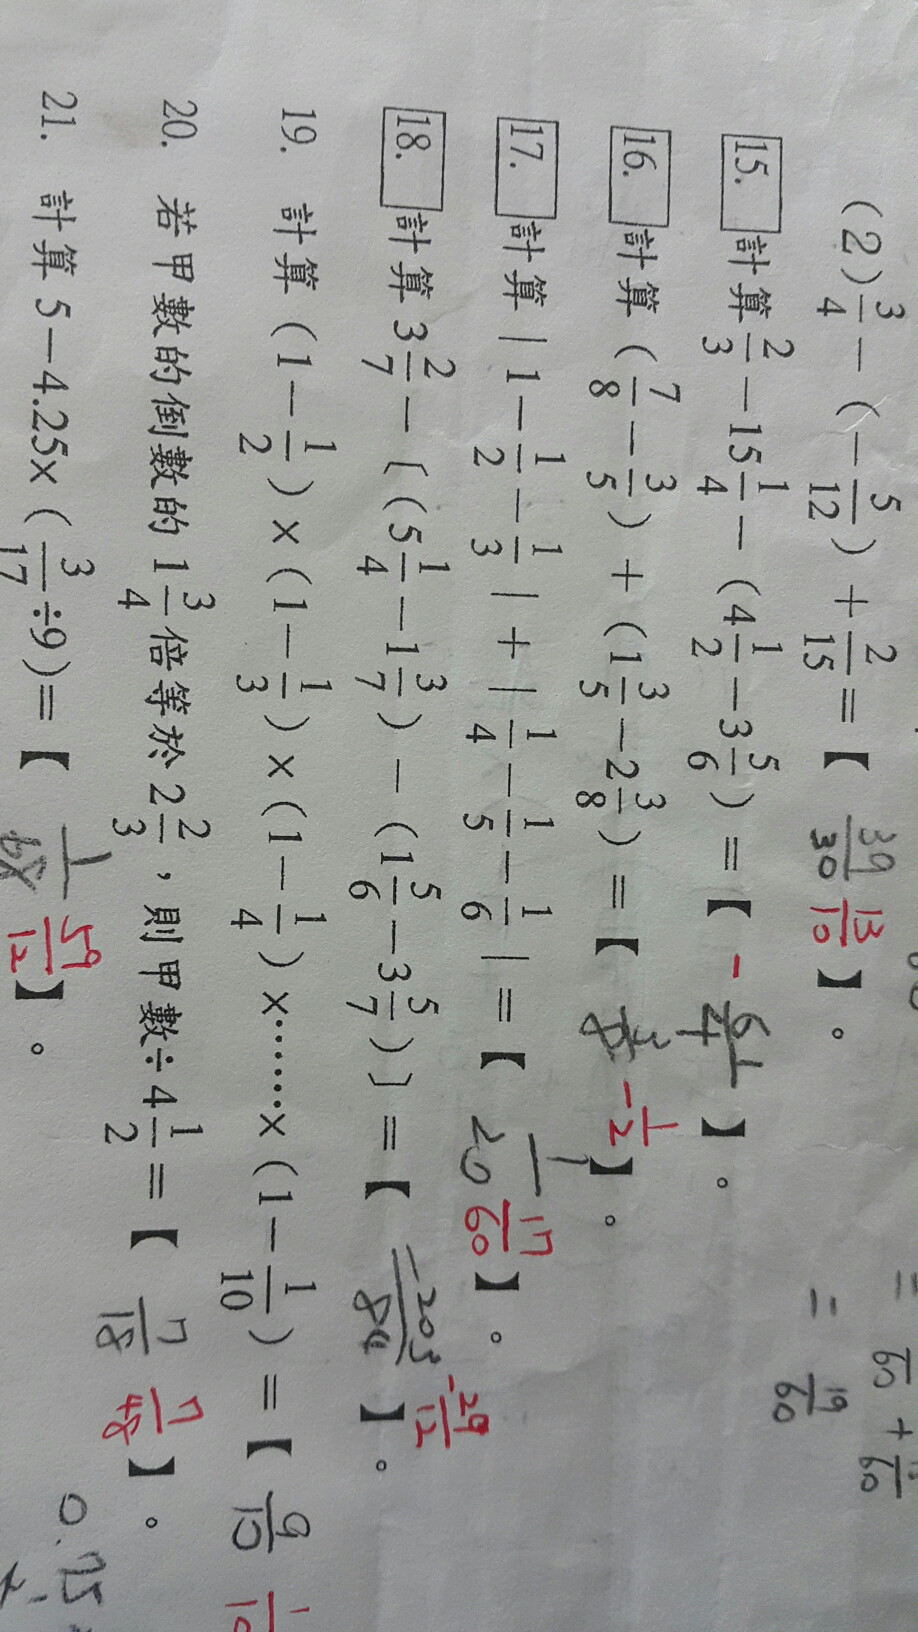 (2) 3/4 − (−5/12) + 2/15 = 【 39/30 13/10 】。
15. 計算 2/3 − 15 1/4 − (4 1/2 − 3 5/6) = 【 − 】。
16. 計算 (7/8 − 3/5) + (1 3/5 − 2 3/8) = 【 −1/2 】。
17. 計算 | 1 − 1/2 − 1/3 | + | 1/4 − 1/5 − 1/6 | = 【 1/20 17/60 】。
18. 計算 3 2/7 − 〔(5 1/4 − 1 3/7) − (1 5/6 − 3 5/7)〕 = 【 −203/84 −29/12 】。
19. 計算 (1 − 1/2) × (1 − 1/3) × (1 − 1/4) × …… × (1 − 1/10) = 【 9/10 1/10
20. 若甲數的倒數的 1 3/4 倍等於 2 2/3，則甲數 ÷ 4 1/2 = 【 7/18 7/48 】。
21. 計算 5 − 4.25 × (3/17 ÷ 9) = 【 59/12 】。
= 19/60
0.75